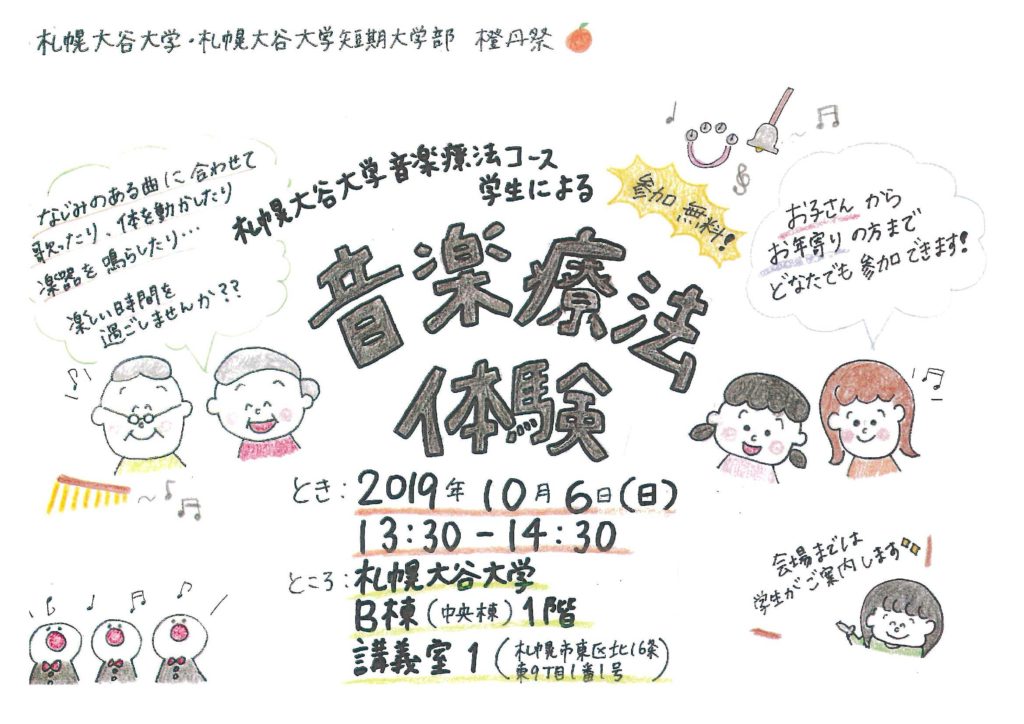 札幌大谷大学・札幌大谷大学短期大学部 橙丹祭
なじみのある曲に合わせて
歌ったり、体を動かしたり
楽器を鳴らしたり…
楽しい時間を
過ごしませんか??
札幌大谷大学音楽療法コース
学生による
参加無料!
お子さんから
お年寄りの方まで
どなたでも参加できます!
音楽療法
体験
とき:2019年10月6日(日)
13:30-14:30
ところ:札幌大谷大学
B棟(中央棟)1階
講義室1(札幌市東区北16条
東9丁目1番1号)
会場までは
学生がご案内します